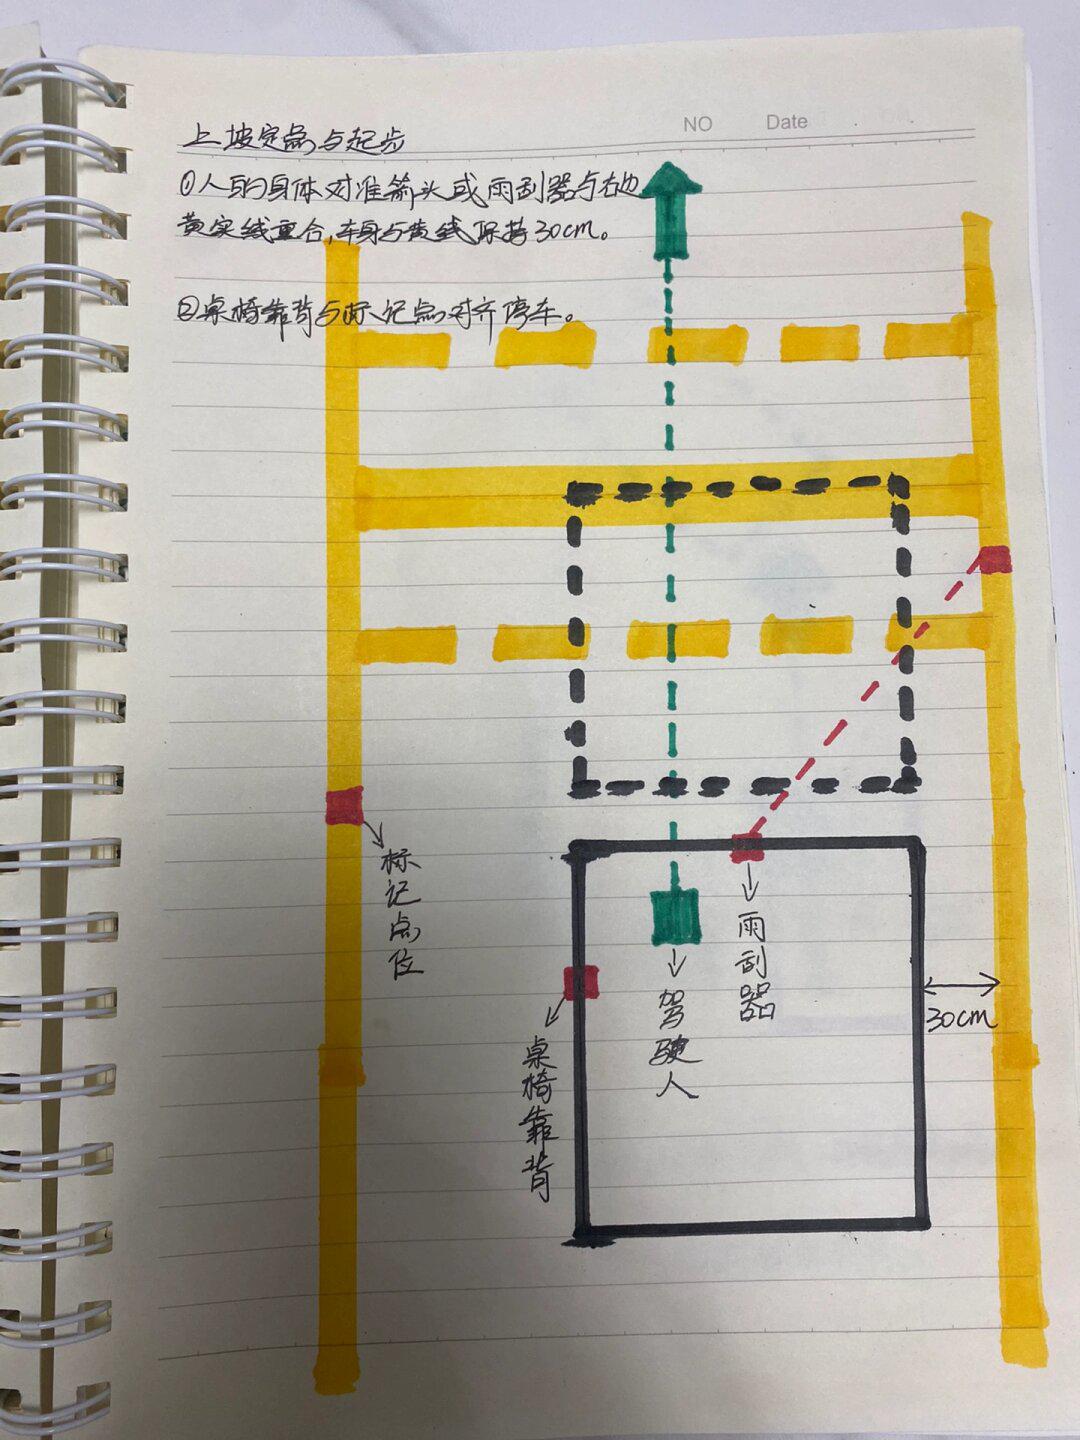 NO Date
上坡定点与起步
①人的身体对准箭头或雨刮器与右边
黄实线重合,车身与黄线保持30cm。
②桌椅靠背与标记点对齐停车。
标记点位
雨刮器
驾驶人
桌椅靠背
30cm